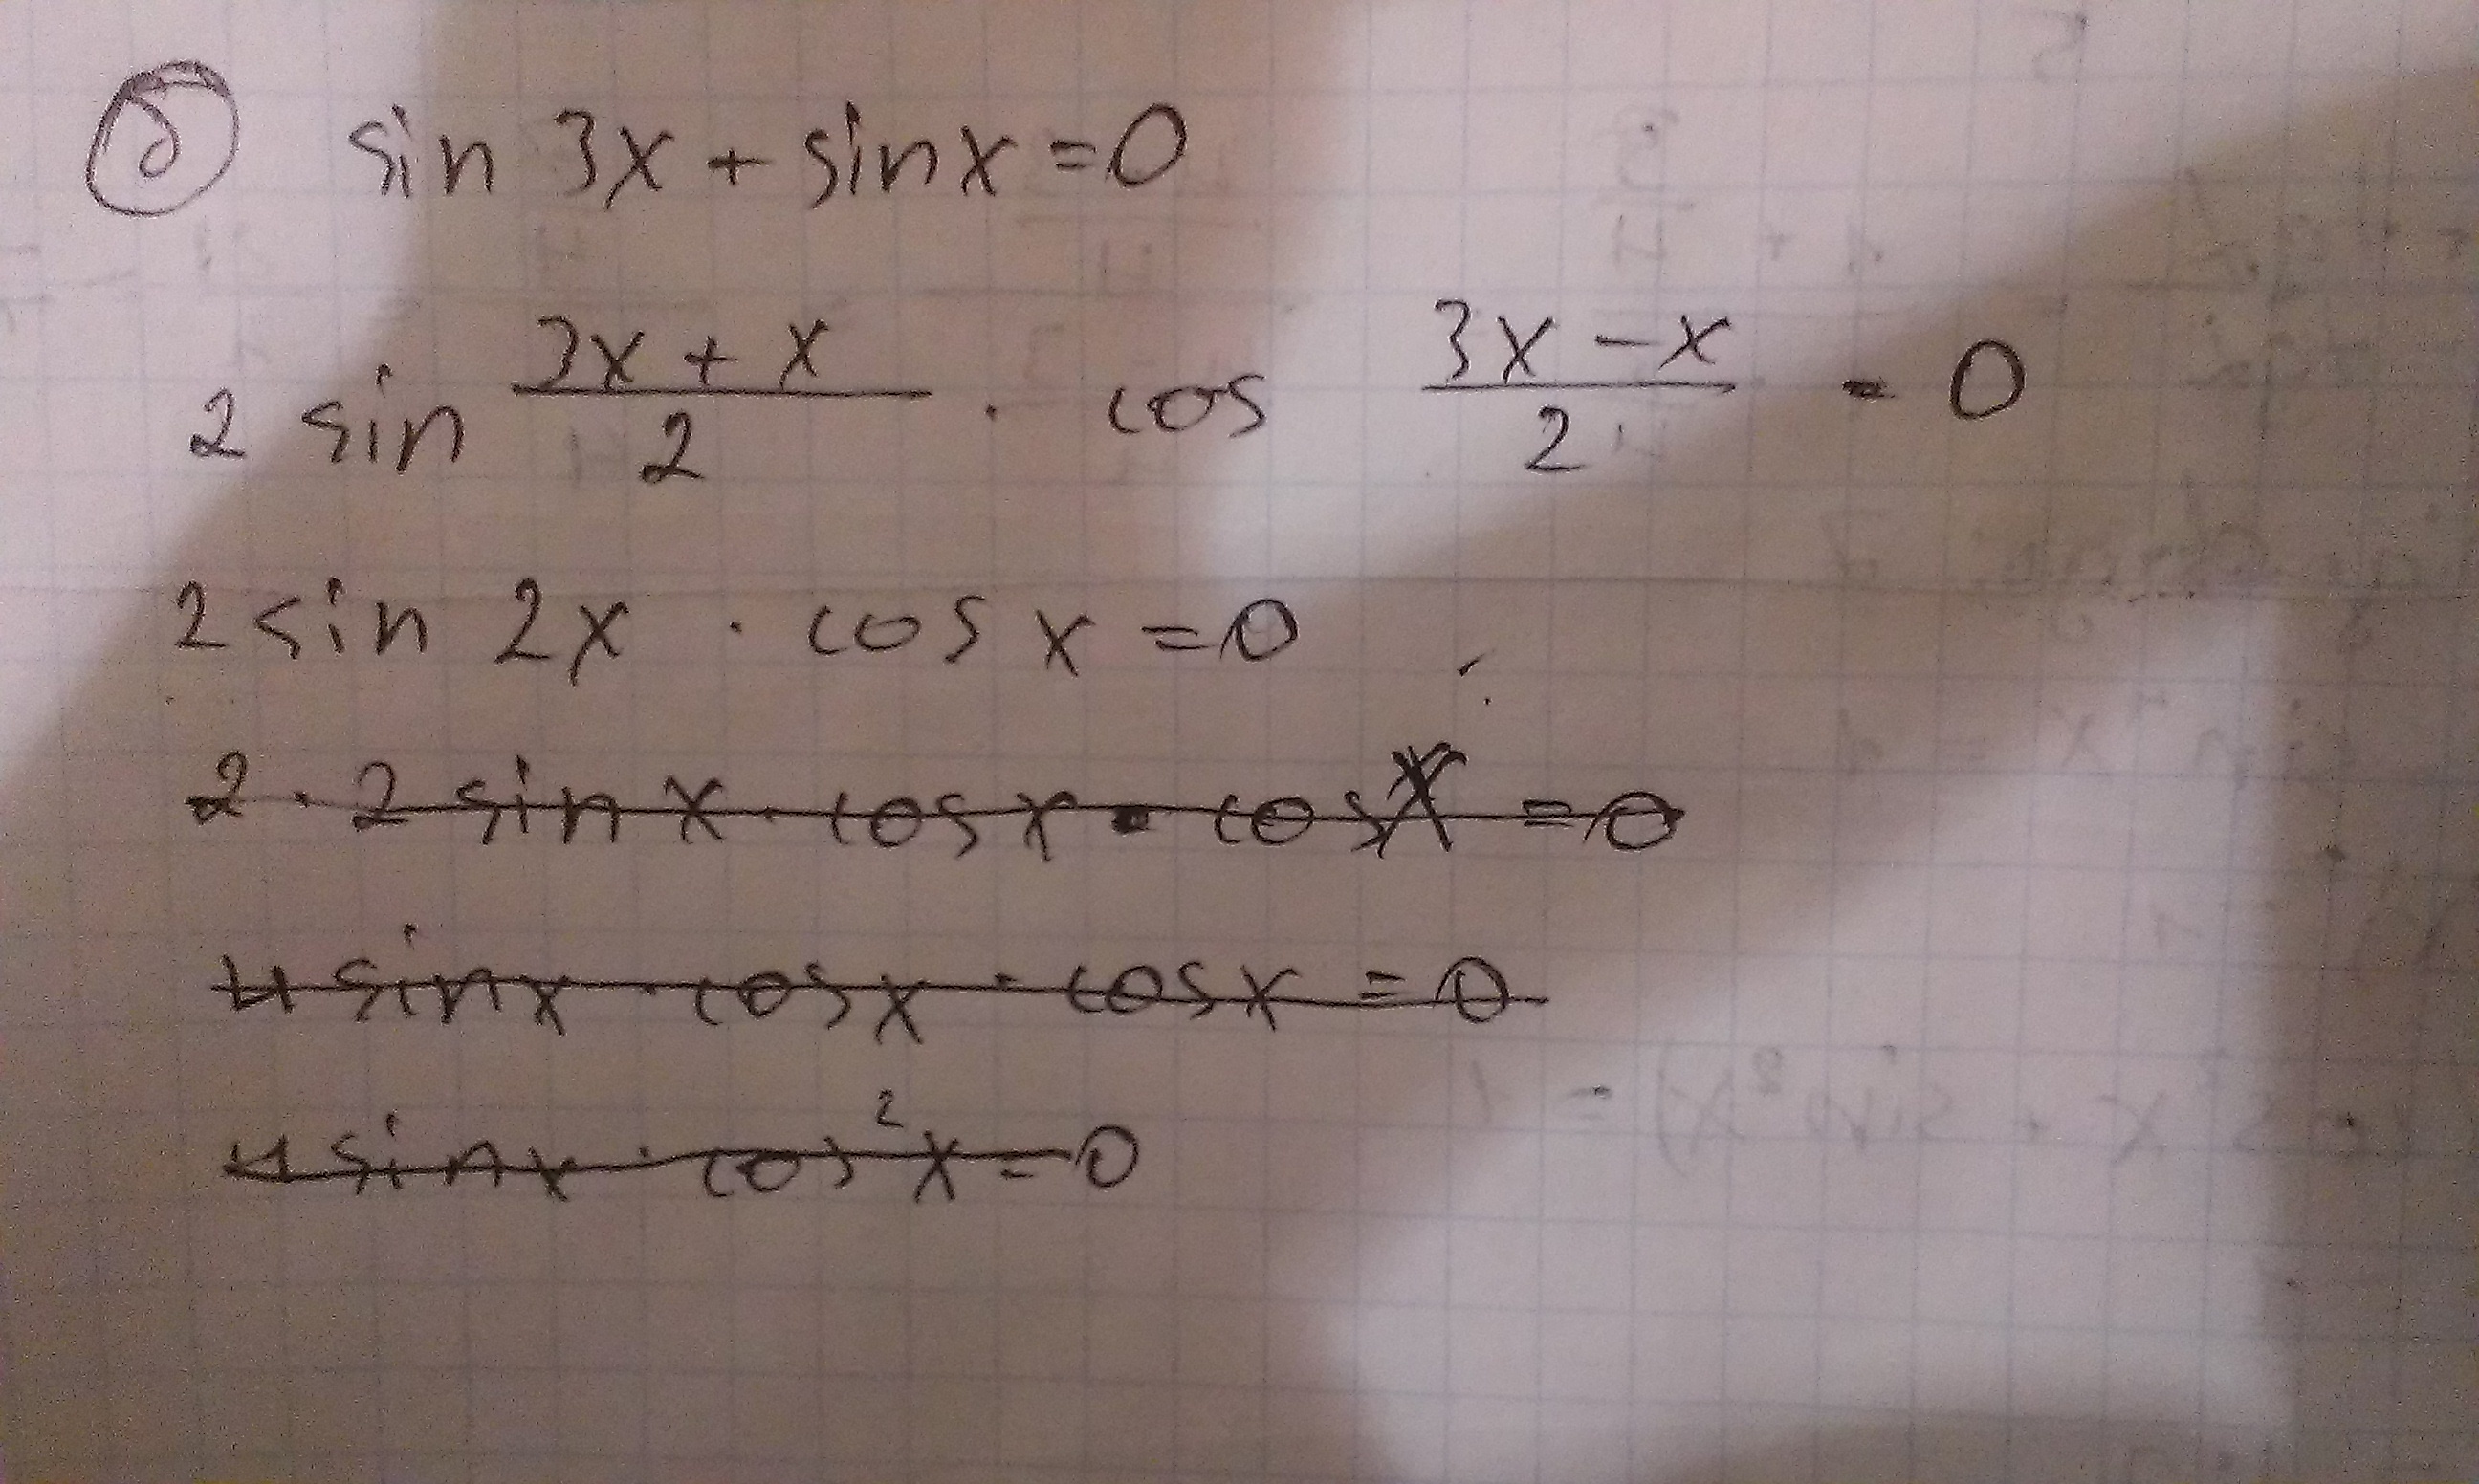 б sin 3x + sin x = 0
2 sin (3x + x)/2 · cos (3x - x)/2 = 0
2 sin 2x · cos x = 0
2 · 2 sin x · cos x · cos x = 0
4 sin x · cos x · cos x = 0
4 sin x · cos² x = 0